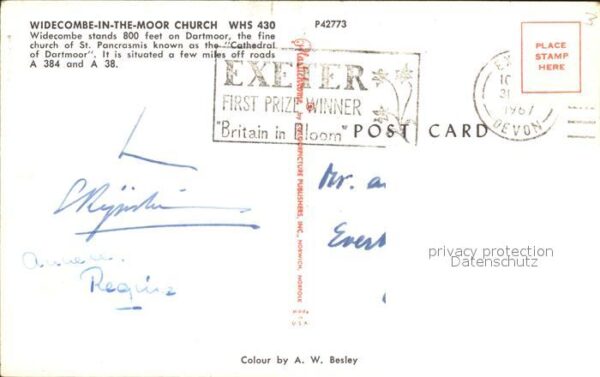 WIDECOMBE-IN-THE-MOOR CHURCH WHS 430
Widecombe stands 800 feet on Dartmoor, the fine
church of St. Pancrasmis known as the "Cathedral
of Dartmoor". It is situated a few miles off roads
A 384 and A 38.
P42773
EXETER
FIRST PRIZE WINNER
"Britain in Bloom"
1967
DEVON
PLACE
STAMP
HERE
POST CARD
Plastichrome ® by COLOURPICTURE PUBLISHERS, INC., NORWICH, NORFOLK
Made in
U.S.A.
Mr.
privacy protection
Datenschutz
Regina
Colour by A. W. Besley